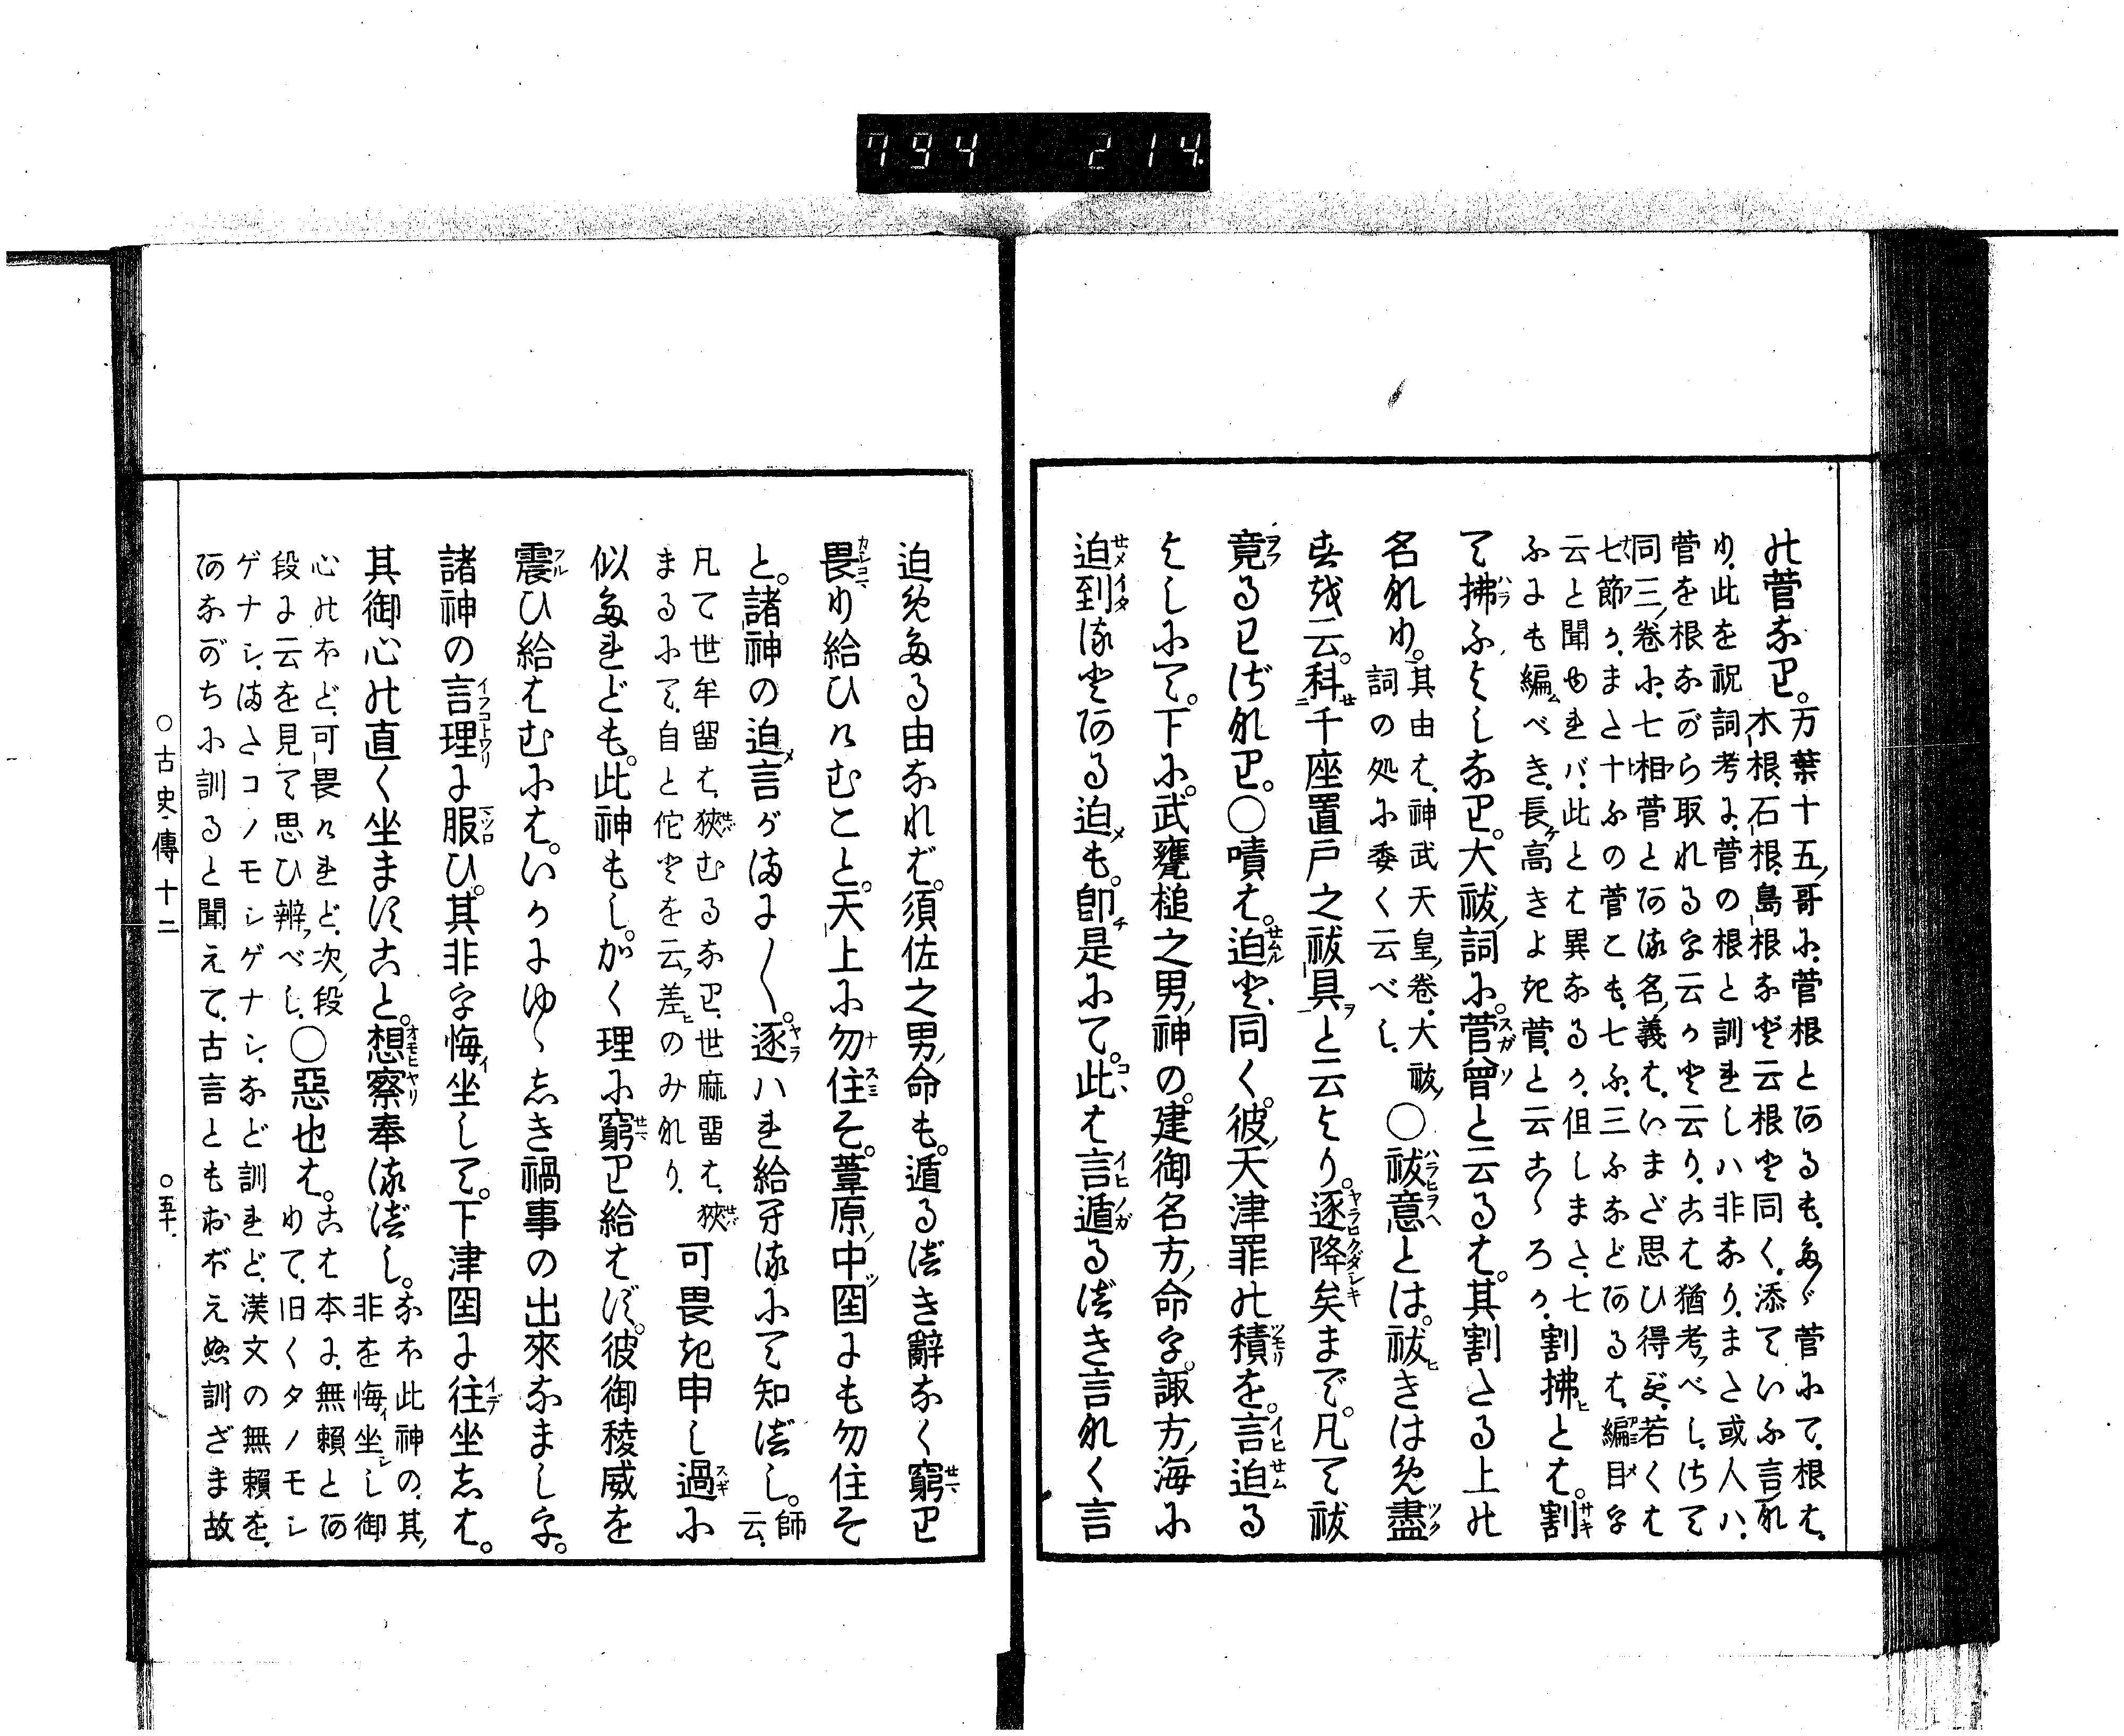 794 214
の菅なり。万葉十五ノ哥に、菅根とあるも、たゞ菅にて、根は、
木根、石根、島根など云根と同く、添ていふ言な
り、此を祝詞考に、菅の根と訓れしハ非なり、また或人ハ、
菅を根ながら取れる字云かと云り、こは猶考べし、さて
同三ノ巻に、七相菅とある名ノ義は、いまだ思ひ得ず、若くは
七節か、また十ふの菅こも、七ふ、三ふなどあるは、編目を
云と聞ゆれバ、此とは異なるか、但しまた、七
ふにも編べき、長高きよき菅と云こゝろか、割拂とは。割
て拂ふよしなり。大祓ノ詞に。菅曾と云るは。其割たる上の
名なり。其由は、神武天皇ノ巻、大祓ノ
詞の処に委く云べし、○祓意とは。祓きはめ盡
すを云。科千座置戸之祓具と云より。逐降矣まで。凡て祓
竟るわざなり。○嘖は。迫と、同く。彼ノ天津罪の積を。言迫る
よしにて。下に。武甕槌之男ノ神の。建御名方ノ命を。諏方ノ海に
迫到ると有る迫も。卽是にて。此は言遁るべき言なく言
迫めたる由なれば。須佐之男ノ命も。遁るべき辭なく窮り
畏り給ひけむこと。天上に勿住そ。葦原ノ中国にも勿住そ
と。諸神の迫言がまに〱。逐ハれ給へるにて知べし。師云、
凡て世牟留は、狹むるなり、世麻留は、狹
まるにて、自と佗とを云差のみなり、可畏き申し過に
似たれども。此神もし。かく理に窮り給はず。彼御稜威を
震ひ給はむには。いかにゆゝしき禍事の出來なましを。
諸神の言理に服ひ。其非を悔坐して。下津国に往坐しは。
其御心の直く坐ますこと。想察奉るべし。なほ此神の、其
非を悔坐し御
心のほど、可畏けれど、次ノ段
段に云を見て思ひ辨べし、○惡也は。こは本に、無頼とあ
りて、旧くタノモシ
ゲナシ、またコノモシゲナシ、など訓れど、漢文の無賴を、
あながちに訓ると聞えて、古言ともおぼえぬ訓ざま故
○古史傳十二 ○五十